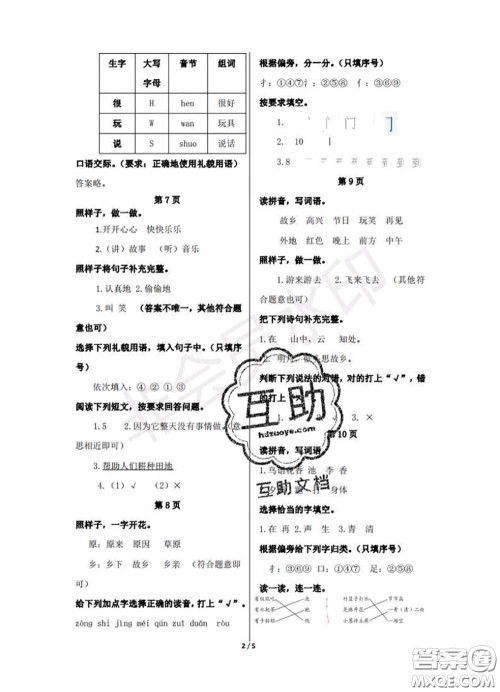 生字 大写字母 音节 组词
很 H hen 很好
玩 W wan 玩具
说 S shuo 说话
口语交际。（要求：正确地使用礼貌用语）
答案略。
第 7 页
照样子，做一做。
1.开开心心 快快乐乐
2.（讲）故事 （听）音乐
照样子将句子补充完整。
1.认真地 2.偷偷地
3.叫 笑 （答案不唯一，其他符合题
意也可）
选择下列礼貌用语，填入句子中。（只填序
号）
依次填入：④ ② ① ③
阅读下列短文，按要求回答问题。
1.5 2.因为它整天没有事情做。（意
思相近即可）
3.帮助人们耕种田地
4.（1）√ （2）×
第 8 页
照样子，一字开花。
原：原来 原因 草原
乡：乡下 故乡 乡亲 （符合题意即
可）
给下列加点字选择正确的读音，打上“√”。
zòng shí jìng méi qún zuǐ duǎn ròu
根据偏旁，分一分。（只填序号）
扌：①④⑦ 氵：②⑤⑧ 彳：③⑥⑨
按要求填空。
2. 10
3.8
第 9 页
读拼音，写词语。
故乡 高兴 节日 玩笑 再见
外地 红色 晚上 前方 中午
照样子，做一做。
1.游来游去 2.飞来飞去 （其他符
合题意也可）
把下列诗句补充完整。
1.在 山中，云 知处。
2. 明月，低头思故乡。
判断下列说法的对错，对的打上“√”，错
的打上“×”。
第 10 页
读拼音，写词语。
1.鸟语花香 池 李 香
身体
选择恰当的字填空。
1.在 再 2.声 生 3.青 清
根据偏旁给下列字归类。（只填序号）
扌：③⑥⑨ 口：①④⑦ 足：②⑤⑧
读一读，连一连。
2 / 5
互助
hdzuoye.com
互助文档